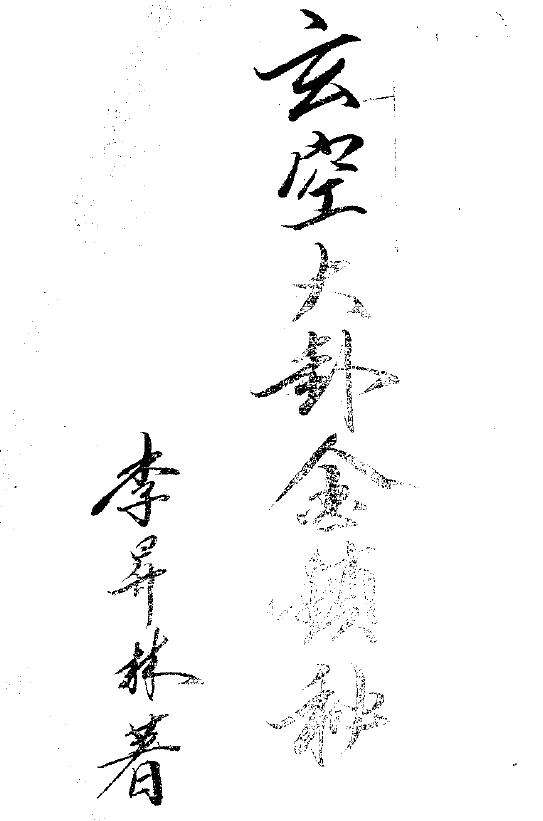 玄空大卦金鎖秘
李昇林著